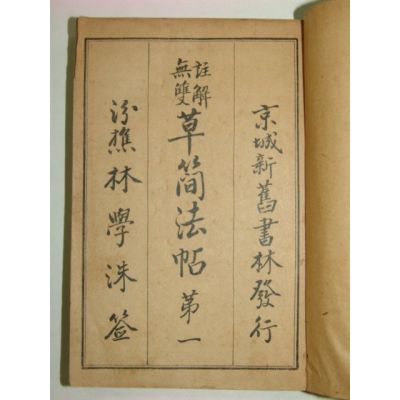 京城新舊書林發行
註解
無雙
草簡法帖 第一
汾樵林學洙簽